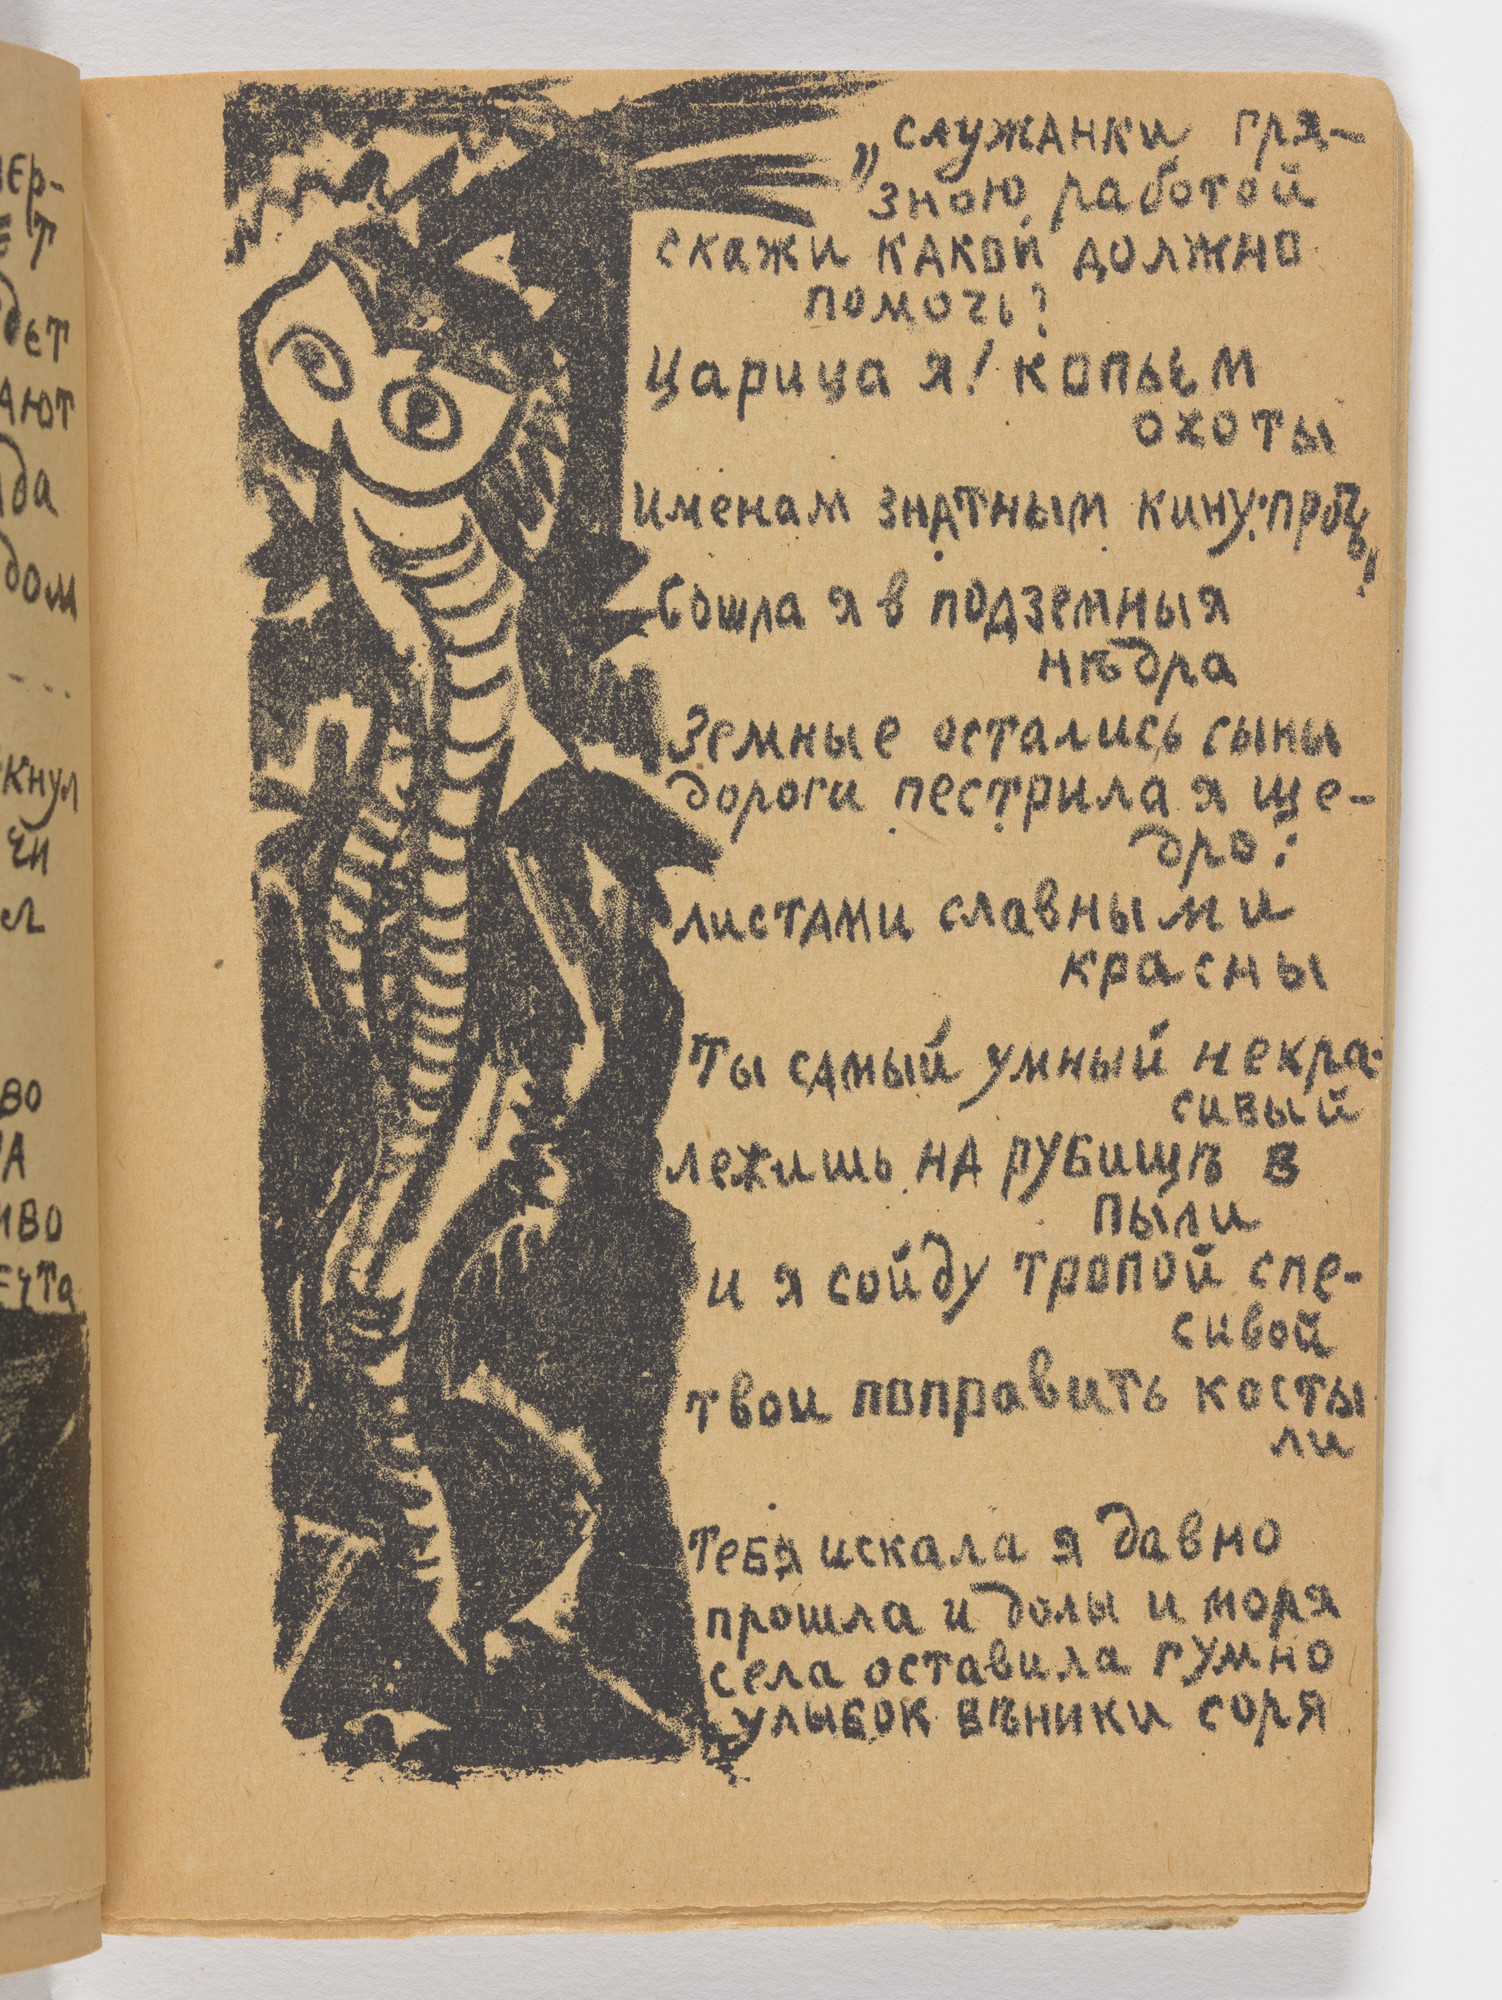 вер-
ет
дет
ают
да
дом
кнул
чи
ел
во
на
иво
ечта
„служанки гря-
зною работой
скажи какой должно
помочь?
Царица я! копьем
охоты
именам знатным кину:прочь"!
Сошла я в подземныя
нѣдра
Земные остались сыны
дороги пестрила я ще-
дро:
листами славными
красны
Ты самый умный некра-
сивый
лежишь на рубищѣ в
пыли
и я сойду тропой спе-
сивой
твои поправить косты
ли
Тебя искала я давно
прошла и долы и моря
села оставила гумно
улыбок вѣники соря